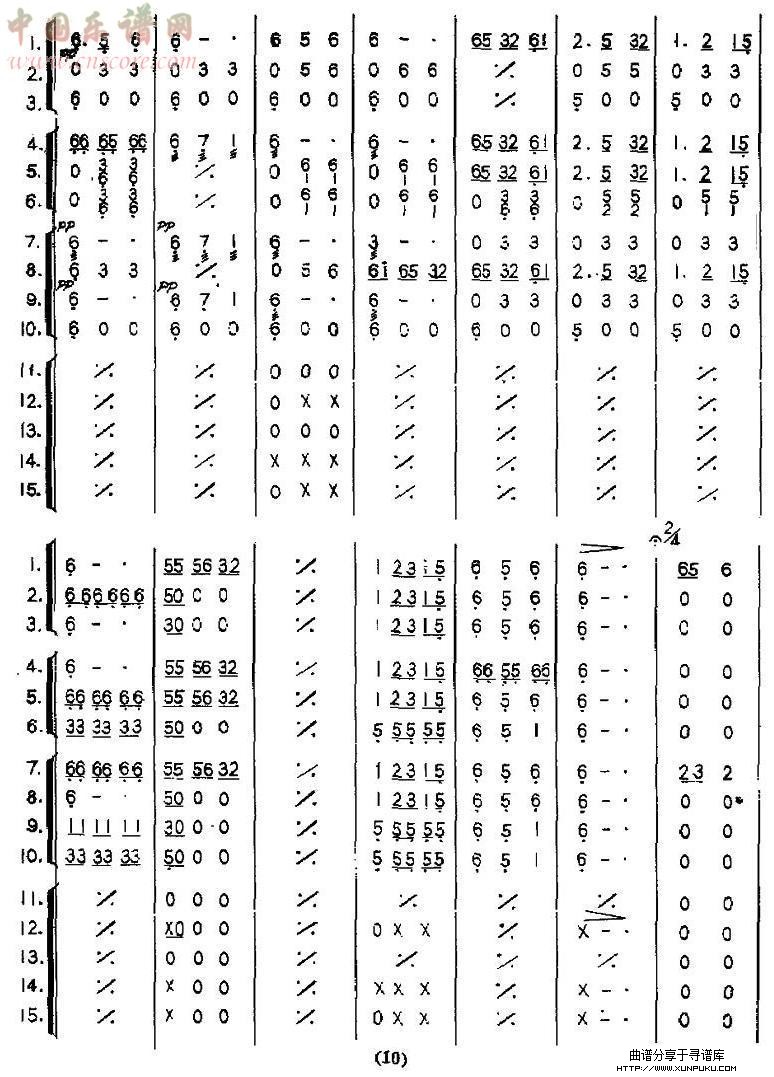 中国乐谱网
www.cnscore.com
1. 6. 5 6 | 6 - · | 6 5 6 | 6 - · | 65 32 61 | 2. 5 32 | 1. 2 15
2. 0 3 3 | 0 3 3 | 0 5 6 | 0 6 6 | ٪ | 0 5 5 | 0 3 3
3. 6 0 0 | 6 0 0 | 6 0 0 | 6 0 0 | ٪ | 5 0 0 | 5 0 0
4. 66 65 66 | 6 7 1 | 6 - · | 6 - · | 65 32 61 | 2. 5 32 | 1. 2 15
5. 0 3/6 3/6 | ٪ | 0 6/1 6/1 | 0 6/1 6/1 | 65 32 61 | 2. 5 32 | 1. 2 15
6. 0 3/6 3/6 | ٪ | 0 6/1 6/1 | 0 6/1 6/1 | 0 3/6 3/6 | 0 5/2 5/2 | 0 5/1 5/1
pp pp
7. 6 - · | 6 7 1 | 6 - · | 3 - · | 0 3 3 | 0 3 3 | 0 3 3
8. 6 3 3 | ٪ | 0 5 6 | 61 65 32 | 65 32 61 | 2. 5 32 | 1. 2 15
pp pp
9. 6 - · | 6 7 1 | 6 - · | 6 - · | 0 3 3 | 0 3 3 | 0 3 3
10. 6 0 0 | 6 0 0 | 6 0 0 | 6 0 0 | 6 0 0 | 5 0 0 | 5 0 0
11. ٪ | ٪ | 0 0 0 | ٪ | ٪ | ٪ | ٪
12. ٪ | ٪ | 0 X X | ٪ | ٪ | ٪ | ٪
13. ٪ | ٪ | 0 0 0 | ٪ | ٪ | ٪ | ٪
14. ٪ | ٪ | X X X | ٪ | ٪ | ٪ | ٪
15. ٪ | ٪ | 0 X X | ٪ | ٪ | ٪ | ٪
2/4
1. 6 - · | 55 56 32 | ٪ | 1 23 15 | 6 5 6 | 6 - · | 65 6
2. 66 66 66 | 50 0 0 | ٪ | 1 23 15 | 6 5 6 | 6 - · | 0 0
3. 6 - · | 30 0 0 | ٪ | 1 23 15 | 6 5 6 | 6 - · | 0 0
4. 6 - · | 55 56 32 | ٪ | 1 23 15 | 66 55 66 | 6 - · | 0 0
5. 66 66 66 | 55 56 32 | ٪ | 1 23 15 | 6 5 6 | 6 - · | 0 0
6. 33 33 33 | 50 0 0 | ٪ | 5 55 55 | 6 5 1 | 6 - · | 0 0
7. 66 66 66 | 55 56 32 | ٪ | 1 23 15 | 6 5 6 | 6 - · | 23 2
8. 6 - · | 50 0 0 | ٪ | 1 23 15 | 6 5 6 | 6 - · | 0 0
9. 11 11 11 | 30 0 0 | ٪ | 5 55 55 | 6 5 1 | 6 - · | 0 0
10. 33 33 33 | 50 0 0 | ٪ | 5 55 55 | 6 5 1 | 6 - · | 0 0
11. ٪ | 0 0 0 | ٪ | ٪ | ٪ | ٪ | 0 0
12. ٪ | X0 0 0 | ٪ | 0 X X | ٪ | X - · | 0 0
13. ٪ | 0 0 0 | ٪ | ٪ | ٪ | ٪ | 0 0
14. ٪ | X 0 0 | ٪ | X X X | ٪ | X - · | 0 0
15. ٪ | X 0 0 | ٪ | 0 X X | ٪ | X - · | 0 0
(10)
曲谱分享于寻谱库
HTTP://WWW.XUNPUKU.COM